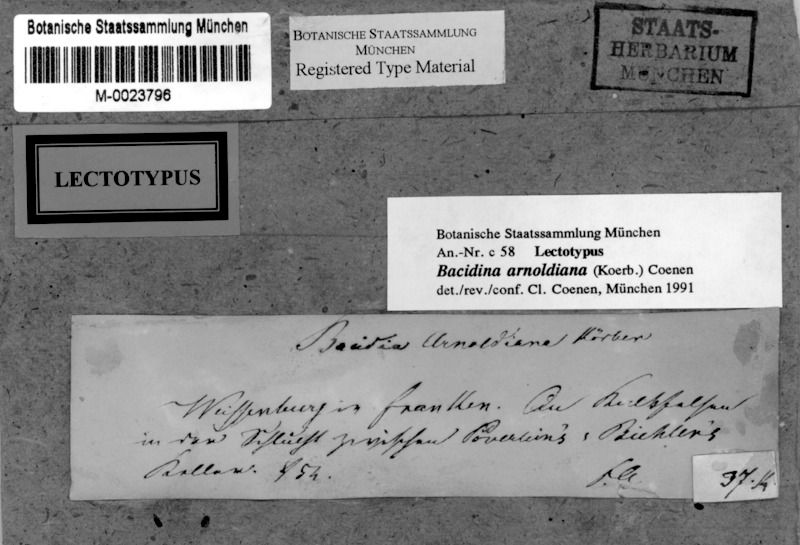 Botanische Staatssammlung München
M-0023796
BOTANISCHE STAATSSAMMLUNG
MÜNCHEN
Registered Type Material
STAATS-
HERBARIUM
MÜNCHEN
LECTOTYPUS
Botanische Staatssammlung München
An.-Nr. c 58 Lectotypus
Bacidina arnoldiana (Koerb.) Coenen
det./rev./conf. Cl. Coenen, München 1991
Bacidia Arnoldiana Körber
in Franken. An Kalkfelsen
in der Schlucht zwischen &
Keller.
37.